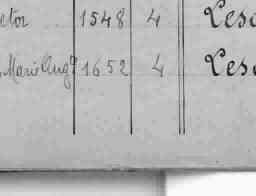 ctor 1548 4 Lesc
Marie Aug 1652 4 Lesc